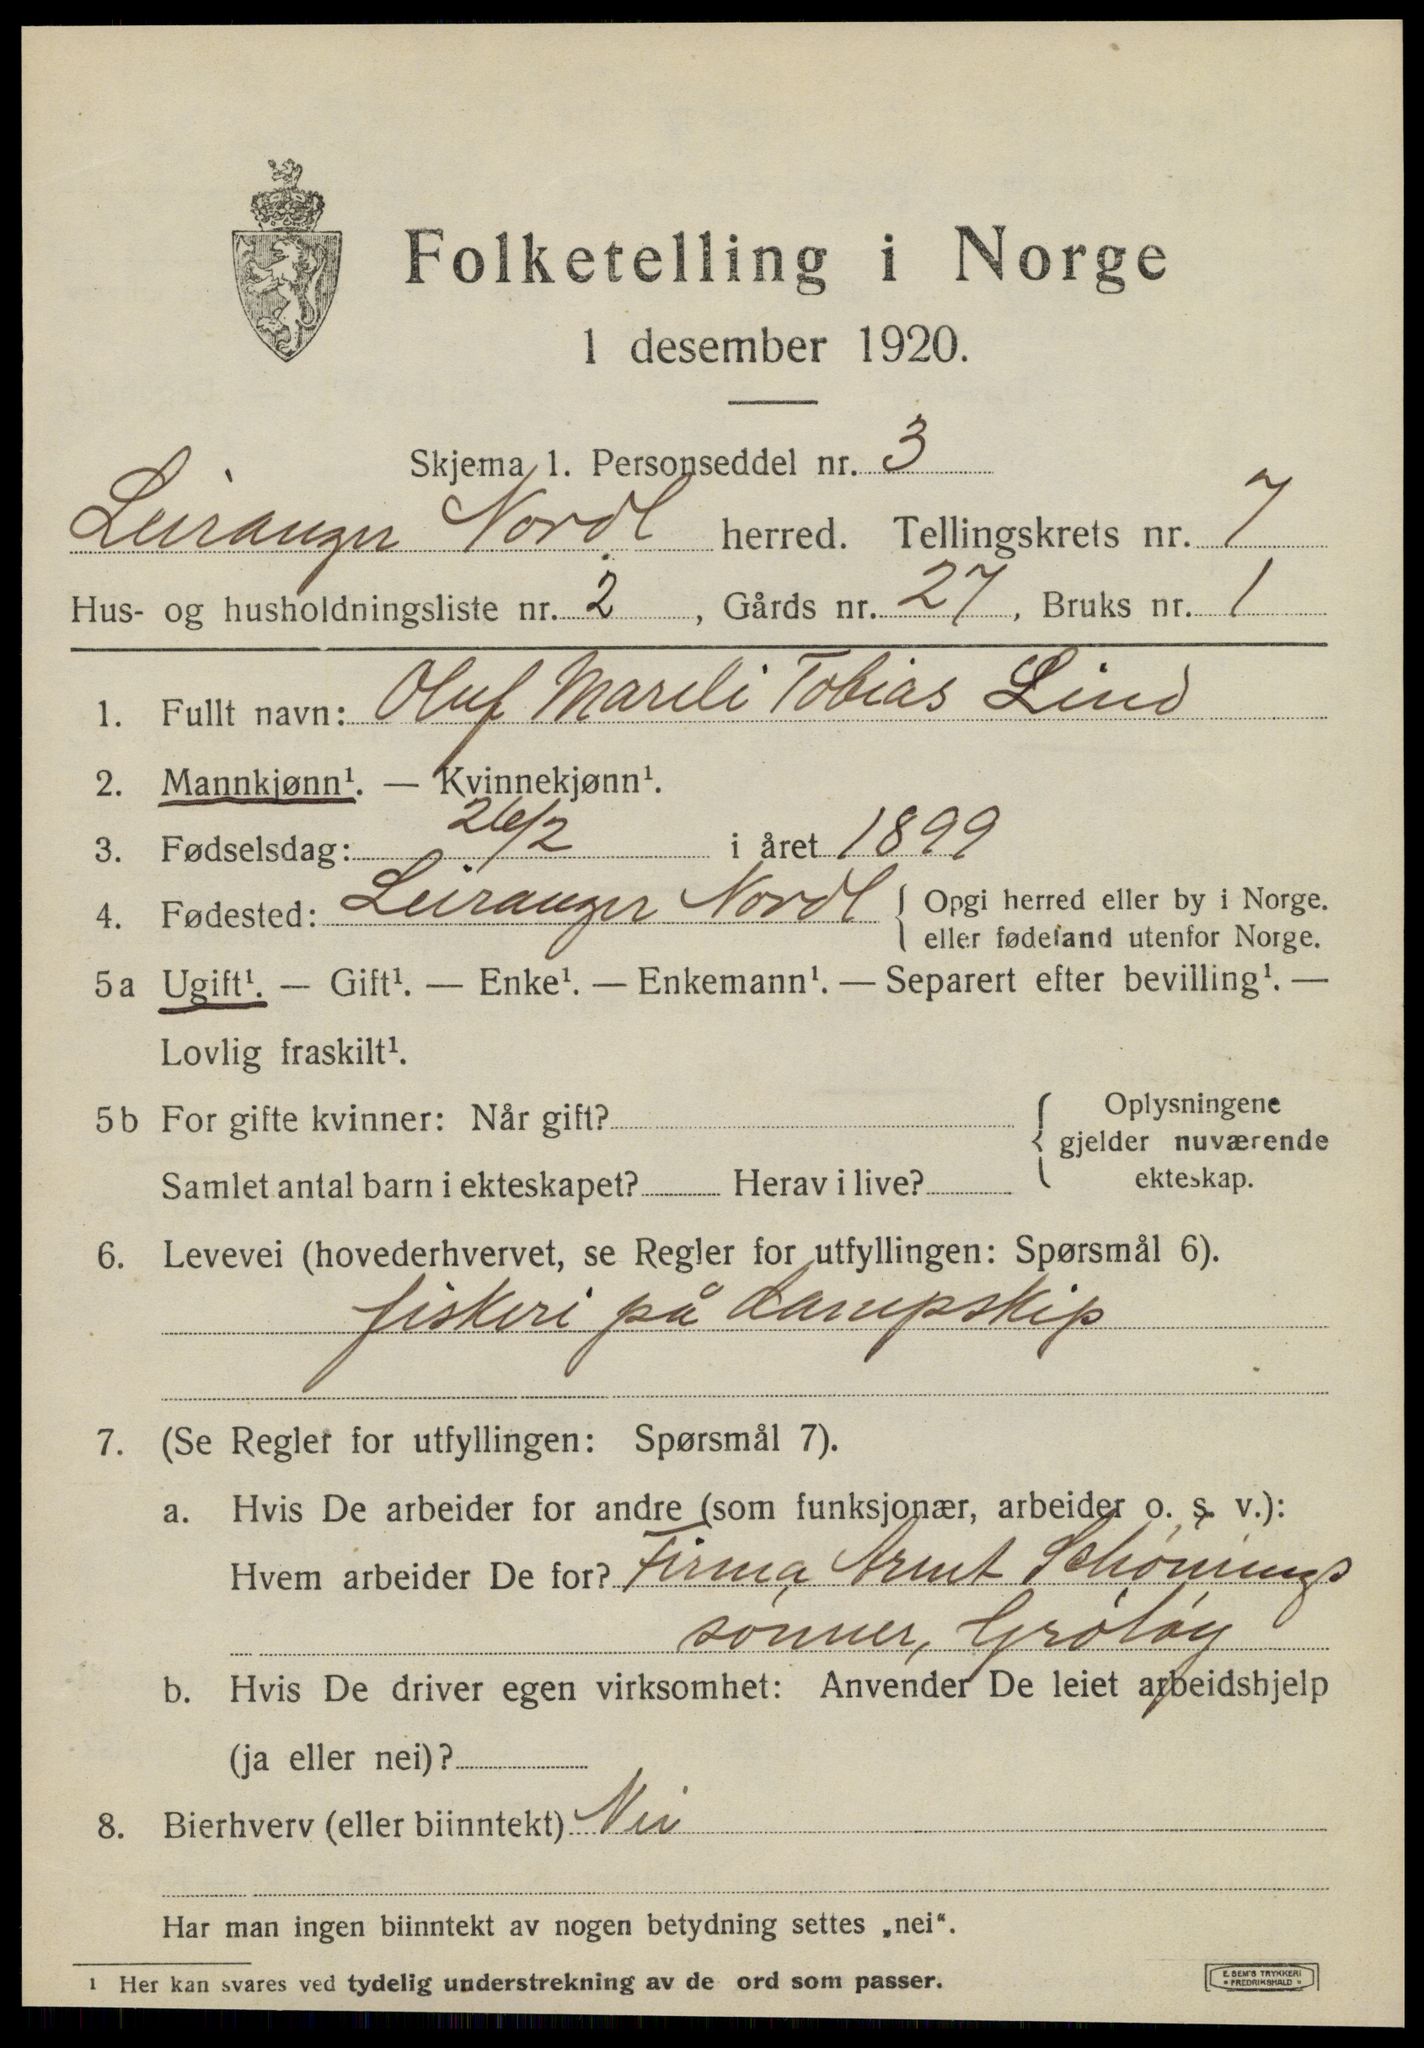 Folketelling i Norge
1 desember 1920.
Skjema 1. Personseddel nr. 3
Leiranger Nordl herred. Tellingskrets nr. 7
Hus- og husholdningsliste nr. 2, Gårds nr. 27, Bruks nr. 1
1. Fullt navn: Oluf Mareli Tobias Lind
2. Mannkjønn¹. — Kvinnekjønn¹.
3. Fødselsdag: 26/2 i året 1899
4. Fødested: Leiranger Nordl { Opgi herred eller by i Norge.
eller fødeland utenfor Norge.
5a Ugift¹. — Gift¹. — Enke¹. — Enkemann¹. — Separert efter bevilling¹. —
Lovlig fraskilt¹.
5b For gifte kvinner: Når gift? { Oplysningene
gjelder nuværende
Samlet antal barn i ekteskapet? Herav i live? ekteskap.
6. Levevei (hovederhvervet, se Regler for utfyllingen: Spørsmål 6).
fiskeri på dampskip
7. (Se Regler for utfyllingen: Spørsmål 7).
a. Hvis De arbeider for andre (som funksjonær, arbeider o. s. v.):
Hvem arbeider De for? Firma Arnt Schønings
sønner, Grøtøy
b. Hvis De driver egen virksomhet: Anvender De leiet arbeidshjelp
(ja eller nei)?
8. Bierhverv (eller biinntekt) Nei
Har man ingen biinntekt av nogen betydning settes „nei“.
1 Her kan svares ved tydelig understrekning av de ord som passer.
E. SEM'S TRYKKERI
FREDRIKSHALD